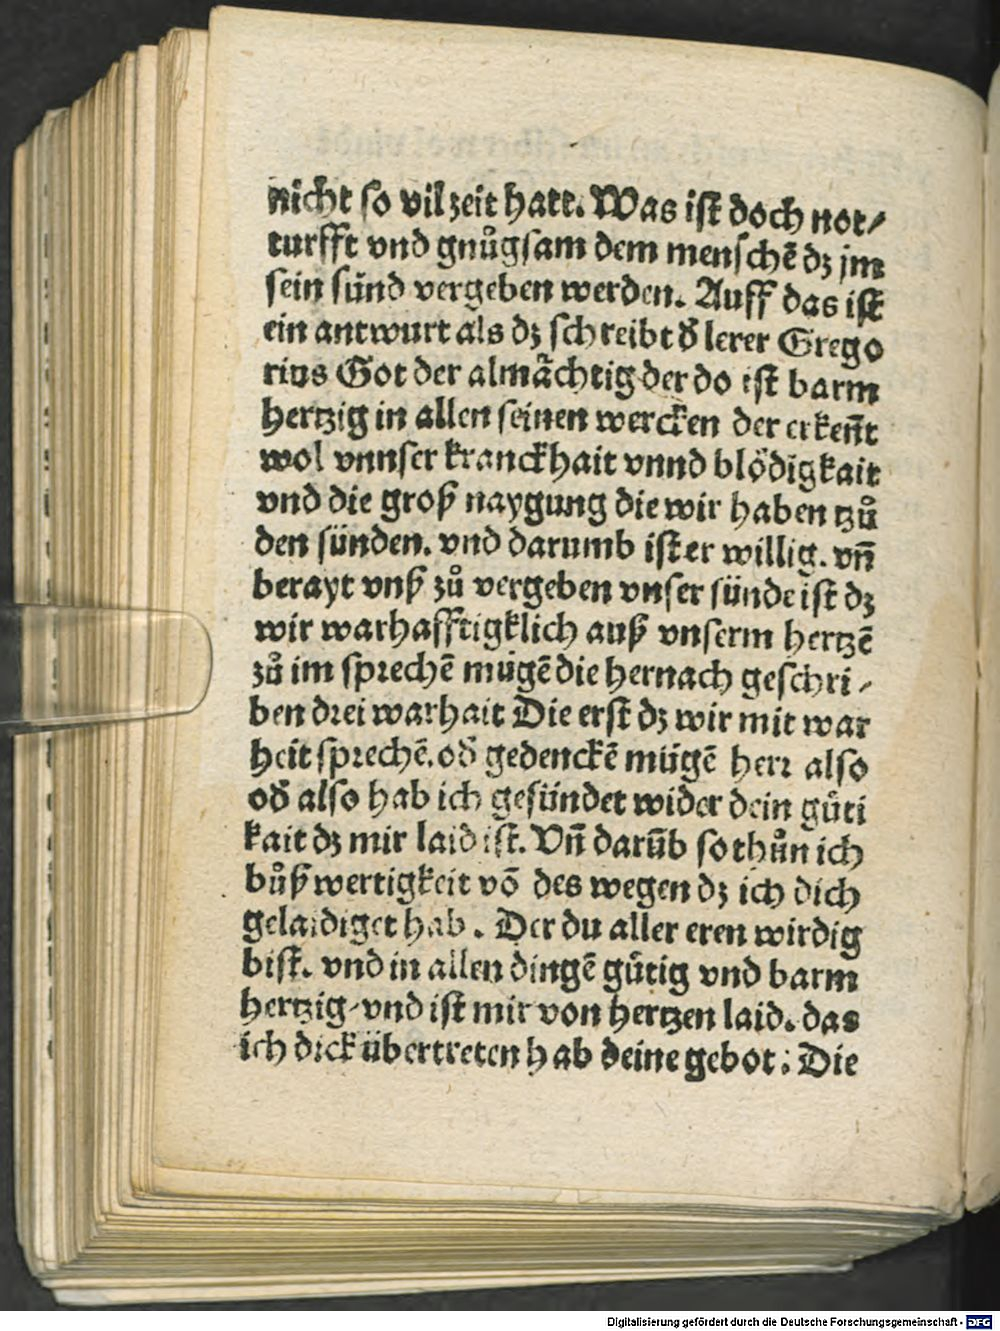 nicht so vil zeit hatt. Was ist doch not⸗
turfft vnd gnůgsam dem menschē dꝫ jm
sein sünd vergeben werden. Auff das ist
ein antwurt als dꝫ schreibt d̕ lerer Grego
rius Got der almȧchtig der do ist barm
hertzig in allen seinen wercken der erkent̄
wol vnnser kranckhait vnnd blödigkait
vnd die groß naygung die wir haben tzů
den sünden. vnd darumb ist er willig. vn̄
berayt vnß zů vergeben vnser sünde ist dꝫ
wir warhafftigklich auß vnserm hertzē
zů im sprechē mügē die hernach geschri⸗
ben drei warhait Die erst dꝫ wir mit war
heit sprechē. od̕ gedenckē mügē herr also
od̕ also hab ich gesündet wider dein güti
kait dꝫ mir laid ist. Vn̄ darūb so thůn ich
bůßwertigkeit vō des wegen dꝫ ich dich
gelaidiget hab. Der du aller eren wirdig
bist. vnd in allen dingē gütig vnd barm
hertzig⸗vnd ist mir von hertzen laid. das
ich dick übertreten hab deine gebot: Die
Digitalisierung gefördert durch die Deutsche Forschungsgemeinschaft - DFG